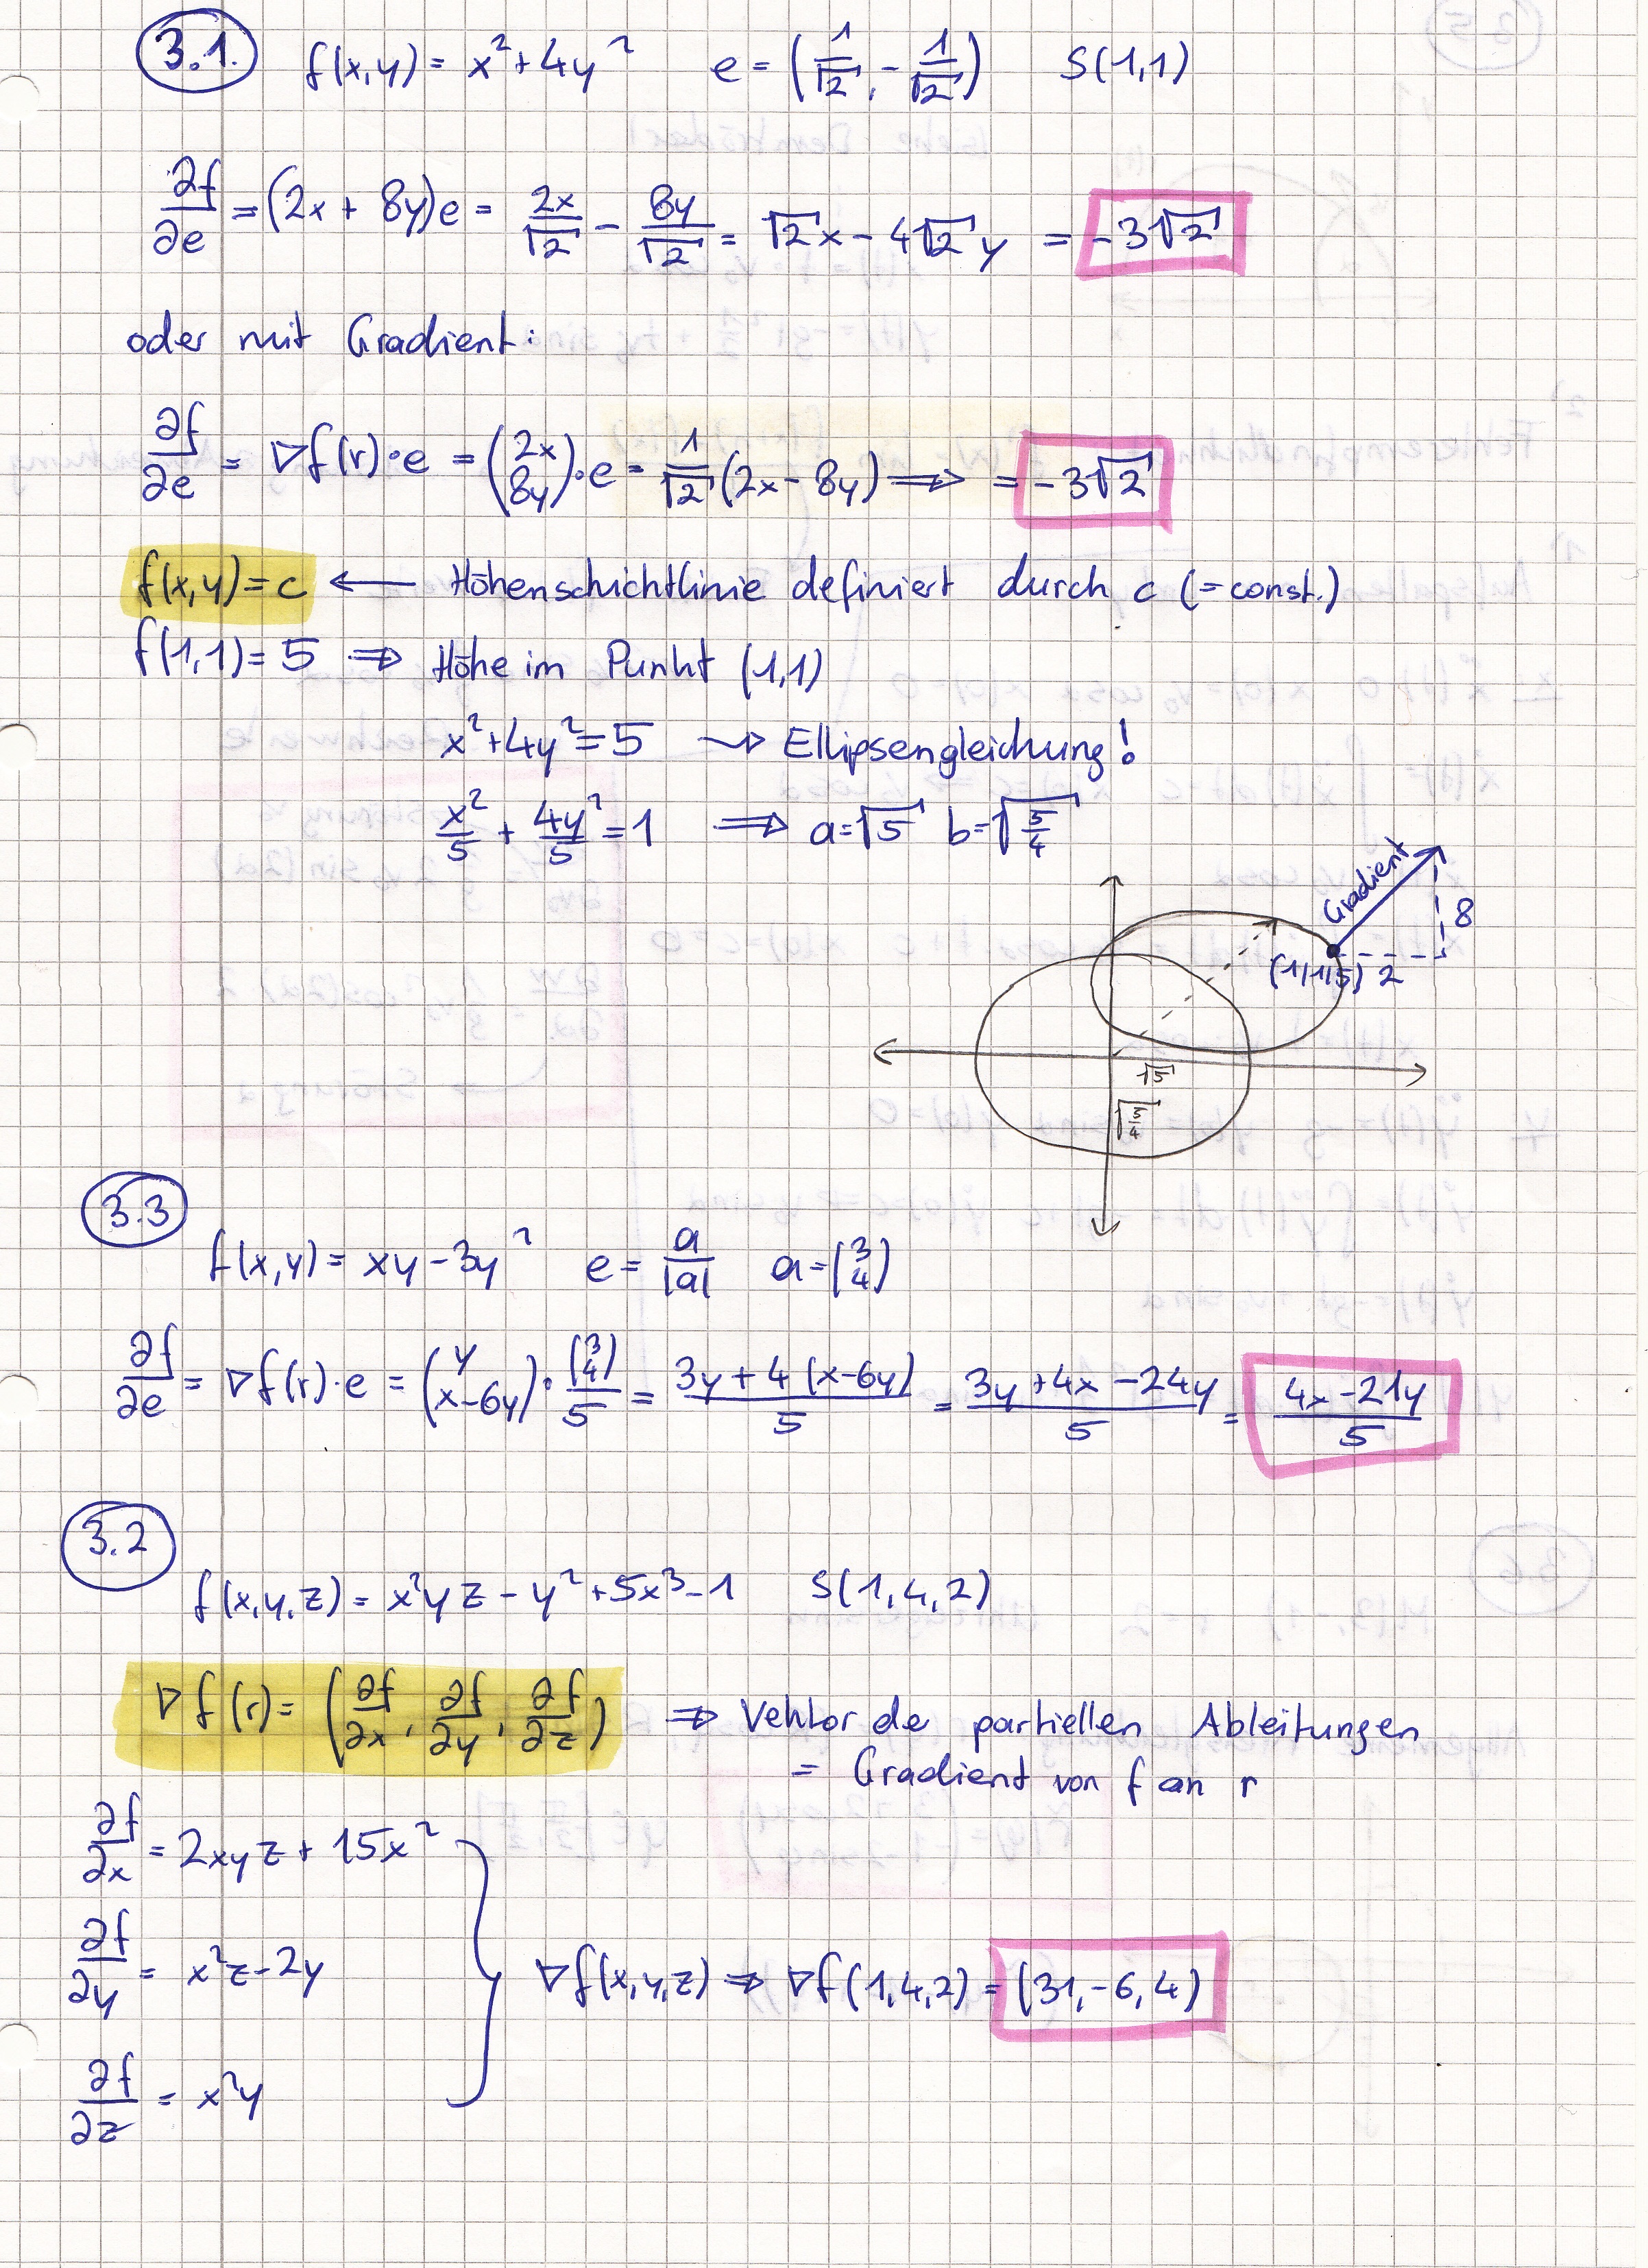 3.1. f(x,y) = x² + 4y² e = (1/√2, -1/√2) S(1,1)
∂f/∂e = (2x + 8y)e = 2x/√2 - 8y/√2 = √2 x - 4√2 y = -3√2
oder mit Gradient:
∂f/∂e = ∇f(r)·e = (2x 8y)·e = 1/√2 (2x - 8y) ⟹ = -3√2
f(x,y) = c ⟵ Höhenschichtlinie definiert durch c (=const.)
f(1,1) = 5 ⟹ Höhe im Punkt (1,1)
x² + 4y² = 5 ⇝ Ellipsengleichung!
x²/5 + 4y²/5 = 1 ⟹ a = √5 b = √(5/4)
Gradient
8
(1|1|5) 2
√5
√(5/4)
3.3
f(x,y) = xy - 3y² e = a/|a| a = (3 4)
∂f/∂e = ∇f(r)·e = (y x-6y)·(3 4)/5 = (3y + 4(x-6y))/5 = (3y + 4x - 24y)/5 = (4x - 21y)/5
3.2
f(x,y,z) = x²yz - y² + 5x³ - 1 S(1,4,2)
∇f(r) = (∂f/∂x, ∂f/∂y, ∂f/∂z) ⟹ Vektor de partiellen Ableitungen
= Gradient von f an r
∂f/∂x = 2xyz + 15x²
∂f/∂y = x²z - 2y
∇f(x,y,z) ⟹ ∇f(1,4,2) = (31,-6,4)
∂f/∂z = x²y